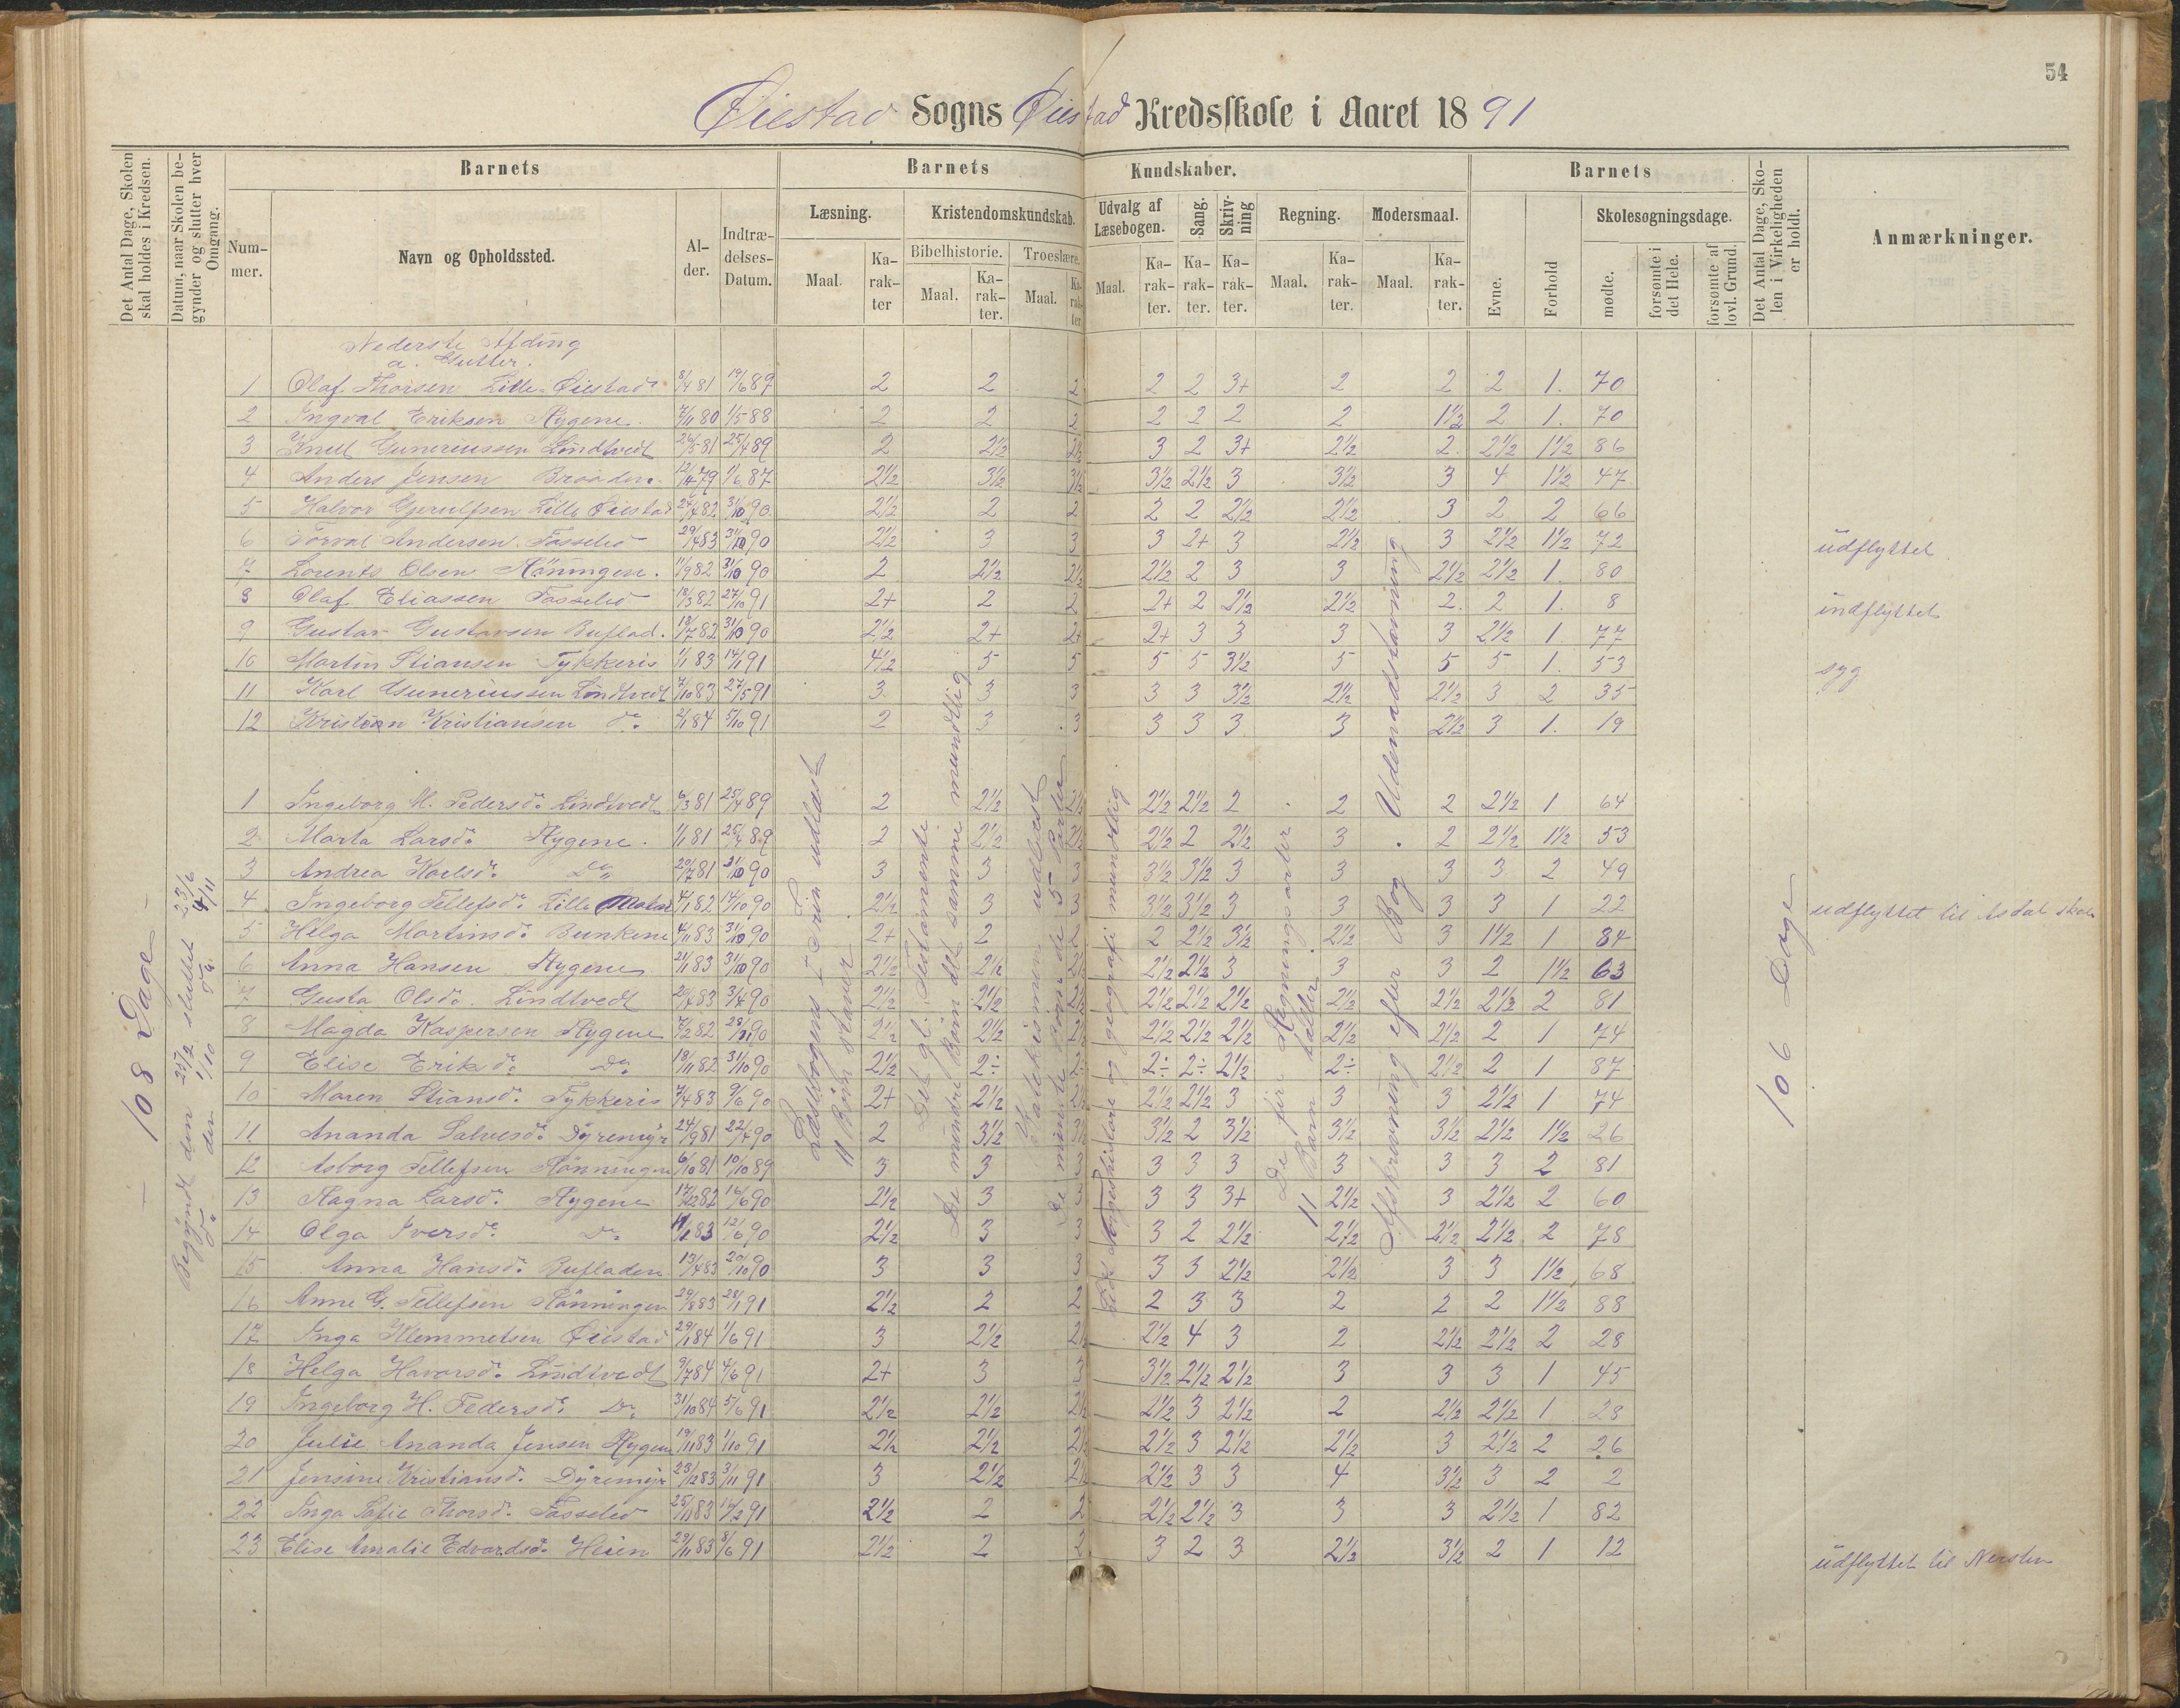 54
Øiestad Sogns Øiestad Kredsskole i Aaret 1891
Det Antal Dage, Skolen skal holdes i Kredsen.
Datum, naar Skolen begynder og slutter hver Omgang.
Barnets
Nummer.
Navn og Opholdssted.
Alder.
Indtrædelses-Datum.
Barnets Kundskaber.
Læsning.
Maal.
Karakter
Kristendomskundskab.
Bibelhistorie.
Maal.
Karakter.
Troeslære.
Maal.
Karakter
Udvalg af Læsebogen.
Maal.
Karakter.
Sang.
Karakter.
Skrivning
Karakter.
Regning.
Maal.
Karakter.
Modersmaal.
Maal.
Karakter.
Barnets
Evne.
Forhold
Skolesøgningsdage.
mødte.
forsømte i det Hele.
forsømte af lovl. Grund.
Det Antal Dage, Skolen i Virkeligheden er holdt.
Anmærkninger.
108 Dage
Begyndt den 25/2 sluttet 23/6
do den 1/10 do 4/11
Nederste Afding
a. Gutter.
1 Olaf Thorsen Lille-Øiestad 8/4 81 19/6 89 2 2 2 2 2 3+ 2 2 2 1. 70
2 Ingval Eriksen Rygene. 7/11 80 1/5 88 2 2 2 2 2 2 2 1 1/2 2 1. 70
3 Knut Guneriussen Lindtvedt 26/5 81 25/4 89 2 2 1/2 2 1/2 3 2 3+ 2 1/2 2. 2 1/2 1 1/2 86
4 Anders Jensen Braaden. 12/4 79 1/6 87 2 1/2 3 1/2 3 1/2 3 1/2 2 1/2 3 3 1/2 3 4 1 1/2 47
5 Halvor Gjerulfsen Lille Øiestad 24/4 82 31/10 90. 2 1/2 2 2 2 2 2 1/2 2 1/2 3 2 2 66
6 Torval Andersen Fasselid 29/4 83 31/10 90 2 1/2 3 3 3 2+ 3 2 1/2 3 2 1/2 1 1/2 72 udflyttet
7 Lorents Olsen Rönningen. 11/9 82 31/10 90 2 2 1/2 2 1/2 2 1/2 2 3 3 2 1/2 2 1/2 1. 80
8 Olaf Eliassen Fasselid 18/3 82 27/10 91 2+ 2 2 2+ 2 2 1/2 2 1/2 2. 2 1. 8 indflyttet
9 Gustav Gustavsen Buflad. 19/7 82 31/10 90 2 1/2 2+ 2+ 2+ 3 3 3 3 2 1/2 1 77
10 Martin Stiansen Tykkeris 1/1 83 14/1 91 4 1/2 5 5 5 5 3 1/2 5 5 5 1. 53 syg
11 Karl Guneriussen Lindtvedt 7/10 83 27/5 91 3. 3 3 3 3 3 1/2 2 1/2 2 1/2 3 2 35
12 Kristian Kristiansen do 2/1 84 5/10 91 2 3 3 3 3 3 3 2 1/2 3 1. 19
1 Ingeborg M. Pedersdr. Lindtvedt 6/3 81 25/4 89 2 2 1/2 2 1/2 2 1/2 2 1/2 2 2 2 2 1/2 1 64
2 Marta Larsdr. Rygene. 1/1 81 25/4 89 2 2 1/2 2 1/2 2 1/2 2 2 1/2 3 2 2 1/2 1 1/2 53
3 Andrea Karlsdr. Do 20/7 81 31/10 90 3 3 3 3 1/2 3 1/2 3 3 3 3 2 49
4 Ingeborg Tellefsdr. Lille 4/1 82 14/10 90 2 1/2 3 3 3 1/2 3 1/2 3 3 3 3 1 22 udflyttet til Asdal skole
5 Helga Martinsdr. Bunkene 4/11 83 31/10 90 2+ 2 2 2 2 1/2 3 1/2 2 1/2 3 1 1/2 1 84
6 Anna Hansen Rygene 21/1 83 31/10 90 2 1/2 2 1/2 2 1/2 2 1/2 2 1/2 3 3 3 2 1 1/2 63
7 Gusta Olsdr. Lindtvedt 20/7 83 3/4 90 2 1/2 2 1/2 2 1/2 2 1/2 2 1/2 2 1/2 2 1/2 2 1/2 2 1/2 2 81
8 Magda Kaspersen Rygene 7/2 82 90 2 1/2 2 1/2 2 1/2 2 1/2 2 1/2 2 1/2 2 1/2 2 1/2 2 1 74
9 Elise Eriksdr. Do 18/11 82 31/10 90 2 1/2 2÷ 2÷ 2÷ 2÷ 2 1/2 2÷ 2 1/2 2 1 87
10 Maren Stiansdr. Tykkeris 7/4 83 9/6 90 2+ 2 1/2 2 1/2 2 1/2 2 1/2 3 3 3 2 1/2 1 74
11 Ananda Salvesdr. Dyremyr 24/9 81 22/4 90 2 3 1/2 3 1/2 3 1/2 2 3 1/2 3 1/2 3 1/2 2 1/2 1 1/2 26
12 Asborg Tellefsen Rönningen 6/10 81 10/10 89 3 3 3 3 3 3 3 3 3 2 81
13 Ragna Larsdr. Rygene 17/12 82 16/6 90 2 1/2 3 3 3 3 3+ 2 1/2 3 2 1/2 2 60
14 Olga Iversdr. Do 83 12/6 90 2 1/2 3 3 3 2 2 1/2 2 1/2 2 1/2 2 1/2 2 78
15 Anna Hansdr. Bufladen 13/4 83 20/10 90 3 3 3 3 3 2 1/2 2 1/2 3 3 1 1/2 68
16 Anne G. Tellefsen Rönningen 29/8 83 28/1 91 2 1/2 2 2 2 3 3 2 2 2 1 1/2 88
17 Inga Klemmetsen Øiestad 29/1 84 1/6 91 3 2 1/2 2 1/2 2 1/2 4 3 2 2 1/2 2 1/2 2 28
18 Helga Havorsdr. Lindtvedt 9/7 84 4/6 91 2+ 3 3 3 1/2 2 1/2 2 1/2 3 3 3 1 45
19 Ingeborg H. Pedersdr. Do 31/10 84 5/6 91 2 1/2 2 1/2 2 1/2 2 1/2 3 2 1/2 2 2 1/2 2 1/2 1 28
20 Julie Ananda Jensen Rygene 19/11 83 1/10 91 2 1/2 2 1/2 2 1/2 2 1/2 3 2 1/2 2 1/2 3 2 1/2 2 26
21 Jensine Kristiansdr. Dyremyr 23/12 83 3/11 91 3 2 1/2 2 1/2 2 1/2 3 3 4 3 1/2 3 2 2
22 Inga Sofie Thorsdr. Fasselid 25/11 83 16/2 91 2 1/2 2 2 2 1/2 2 1/2 3 3 3 2 1/2 1 82
23 Elise Amalie Edvardsdr. Heien 29/11 83 8/6 91 2 1/2 2 2 3 2 3 2 1/2 3 1/2 2 1 12 udflyttet til
Læsebogens I Trin udlæst
11 Börn staver
Det gl. Testamente
De mindre Börn det samme mundtlig
Katekismen udlæst
De mindste Börn de 5 Parter
og geografi mundtlig
De fire Regningsarter
11 Barn taller
Afskrivning efter Bog. Udenadsskrivning
106 Dage